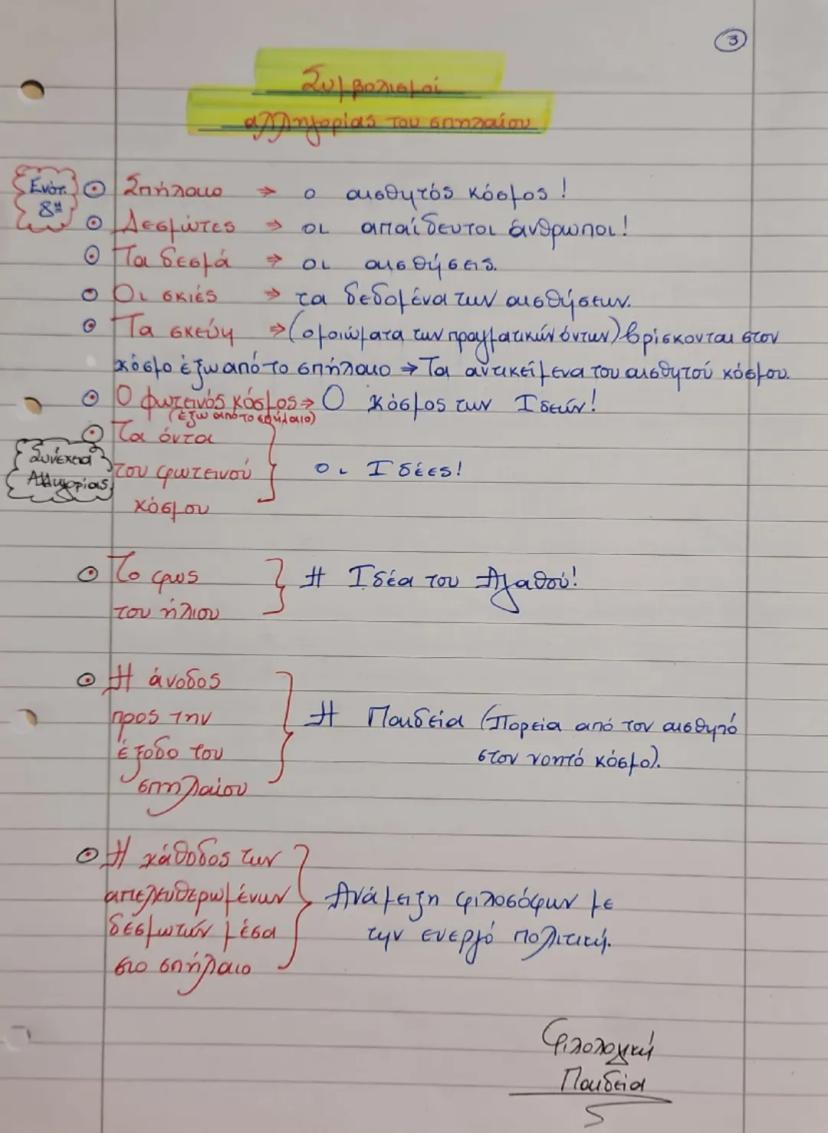 3
Συμβολισμοί
αλληγορίας του σπηλαίου
Ενότ.
8η
Σπήλαιο → ο αισθητός κόσμος!
Δεσμώτες → οι απαίδευτοι άνθρωποι!
Τα δεσμά → οι αισθήσεις.
Οι σκιές → τα δεδομένα των αισθήσεων.
Τα σκεύη → (ομοιώματα των πραγματικών όντων) βρίσκονται στον
κόσμο έξω από το σπήλαιο → Τα αντικείμενα του αισθητού κόσμου.
Ο φωτεινός κόσμος → Ο κόσμος των Ιδεών!
(έξω από το σπήλαιο)
Συνέχεια
Αλληγορίας
Τα όντα
του φωτεινού Οι Ιδέες!
κόσμου
Το φως Η Ιδέα του Αγαθού!
του ήλιου
Η άνοδος
προς την Η Παιδεία (Πορεία από τον αισθητό
έξοδο του στον νοητό κόσμο).
σπηλαίου
Η κάθοδος των
απελευθερωμένων Ανάμειξη φιλοσόφων με
δεσμωτών μέσα την ενεργό πολιτική.
στο σπήλαιο
Φιλολογική
Παιδεία